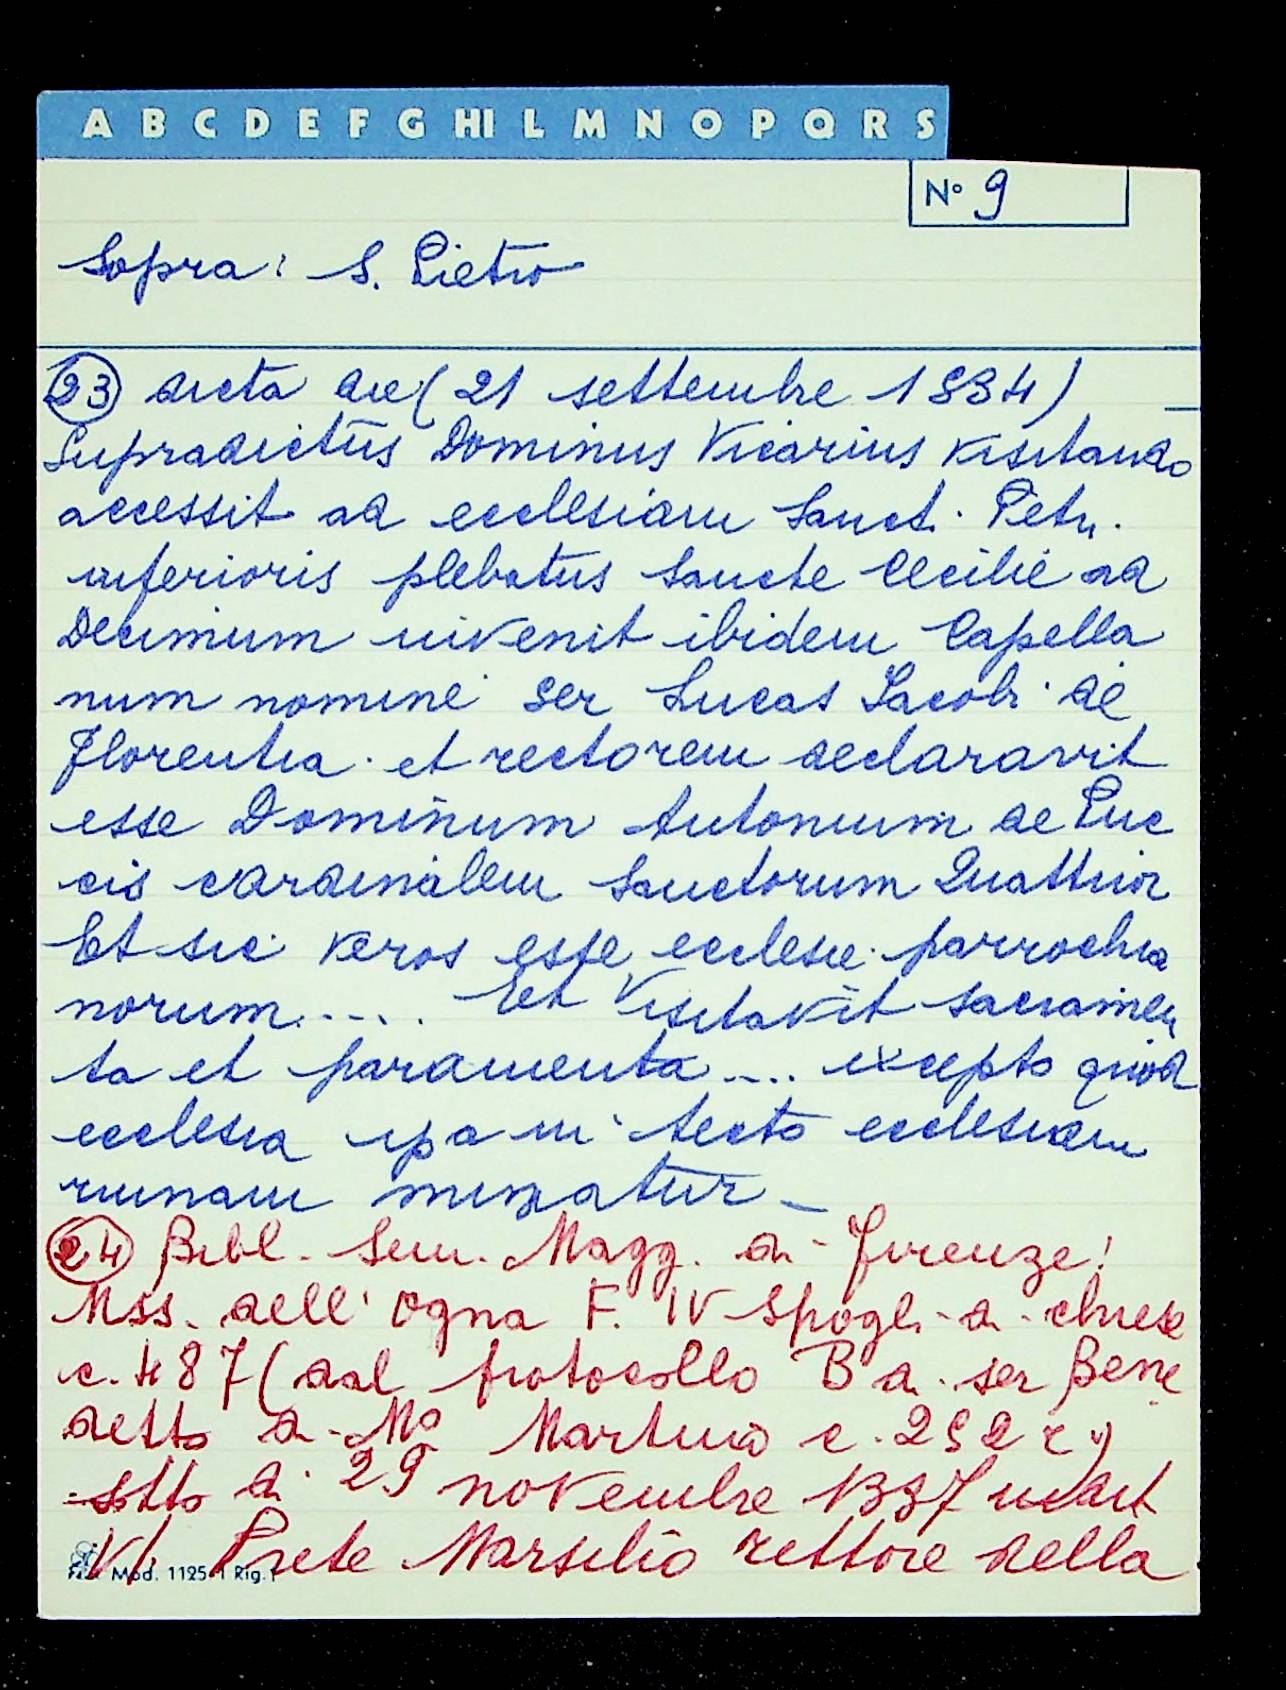 A B C D E F G HI L M N O P Q R S
N° 9
Sopra: S. Pietro
23 dicta die (21 settembre 1534)
Supradictus Dominus Vicarius visitando
accessit ad ecclesiam Sanct. Petri
inferioris plebatus Sancte Cecilie ad
Decimum invenit ibidem Capella
num nomine Ser Lucas Iacobi de
Florentia et rectorem declaravit
esse Dominum Antonium de Puc
cis cardinalem Sanctorum Quattuor
Et sic veros esse ecclesie parrochia
norum.... Et visitavit sacramen
ta et paramenta.... excepto quod
ecclesia ipa in tecto ecclesiam
ruinam minatur -
24 Bibl. Sem. Magg. di Firenze:
Mss. dell' Ogna F. IV Spogli di chiese
c. 487 (dal protocollo B di ser Bene
detto di Mo Martino c.
sotto di 29 novembre 1337 indict
VI. Prete Marsilio rettore della
Mod. 1125-1 Rig. 1